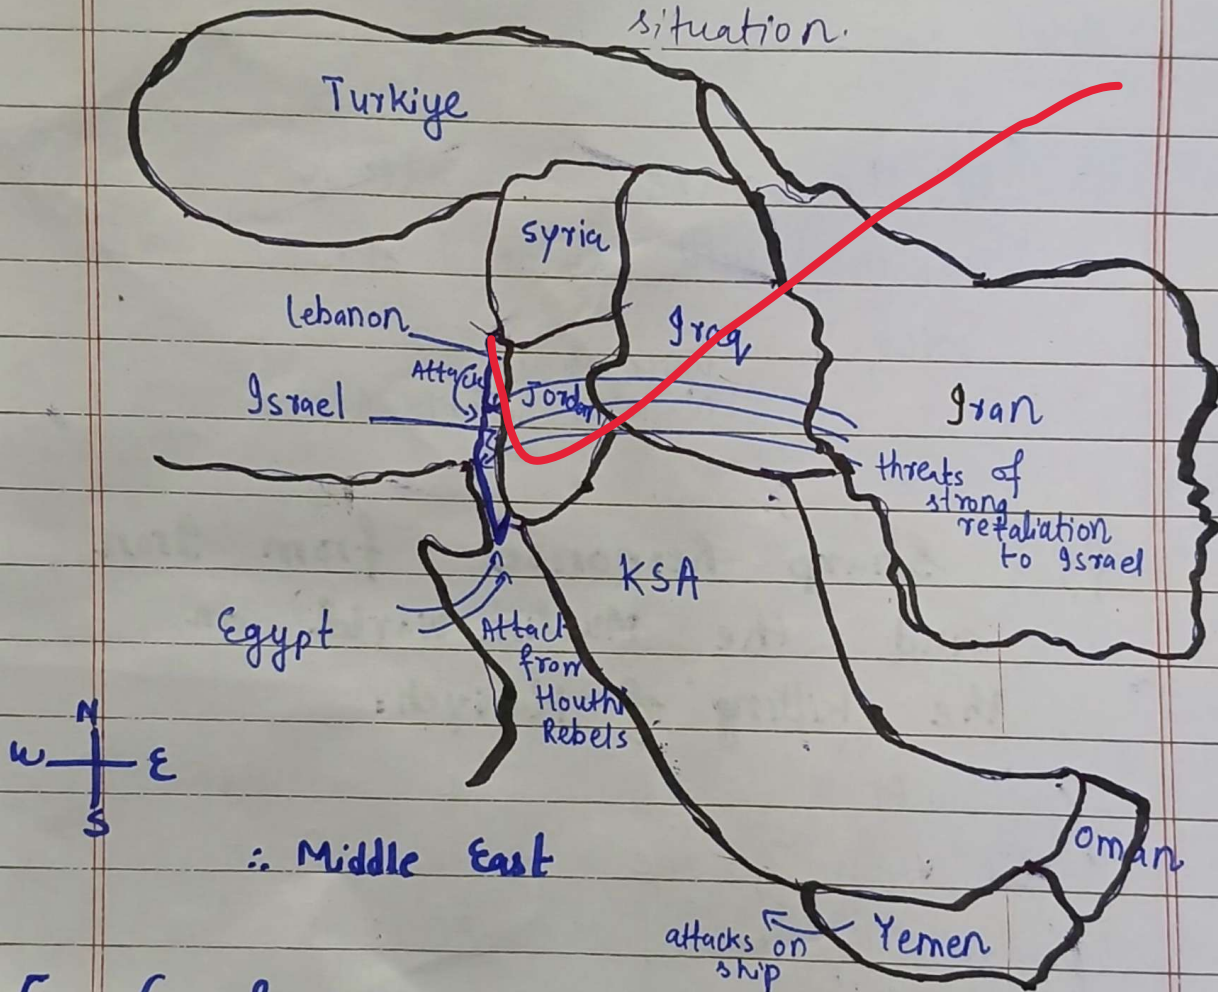 situation.
Turkiye
Syria
Lebanon
Iraq
Attack
Israel
Jordan
Iran
threats of
strong
retaliation
to Israel
KSA
Egypt
Attack
from
Houthi
Rebels
N
W E
S
∴ Middle East
Oman
Yemen
attacks on
ship